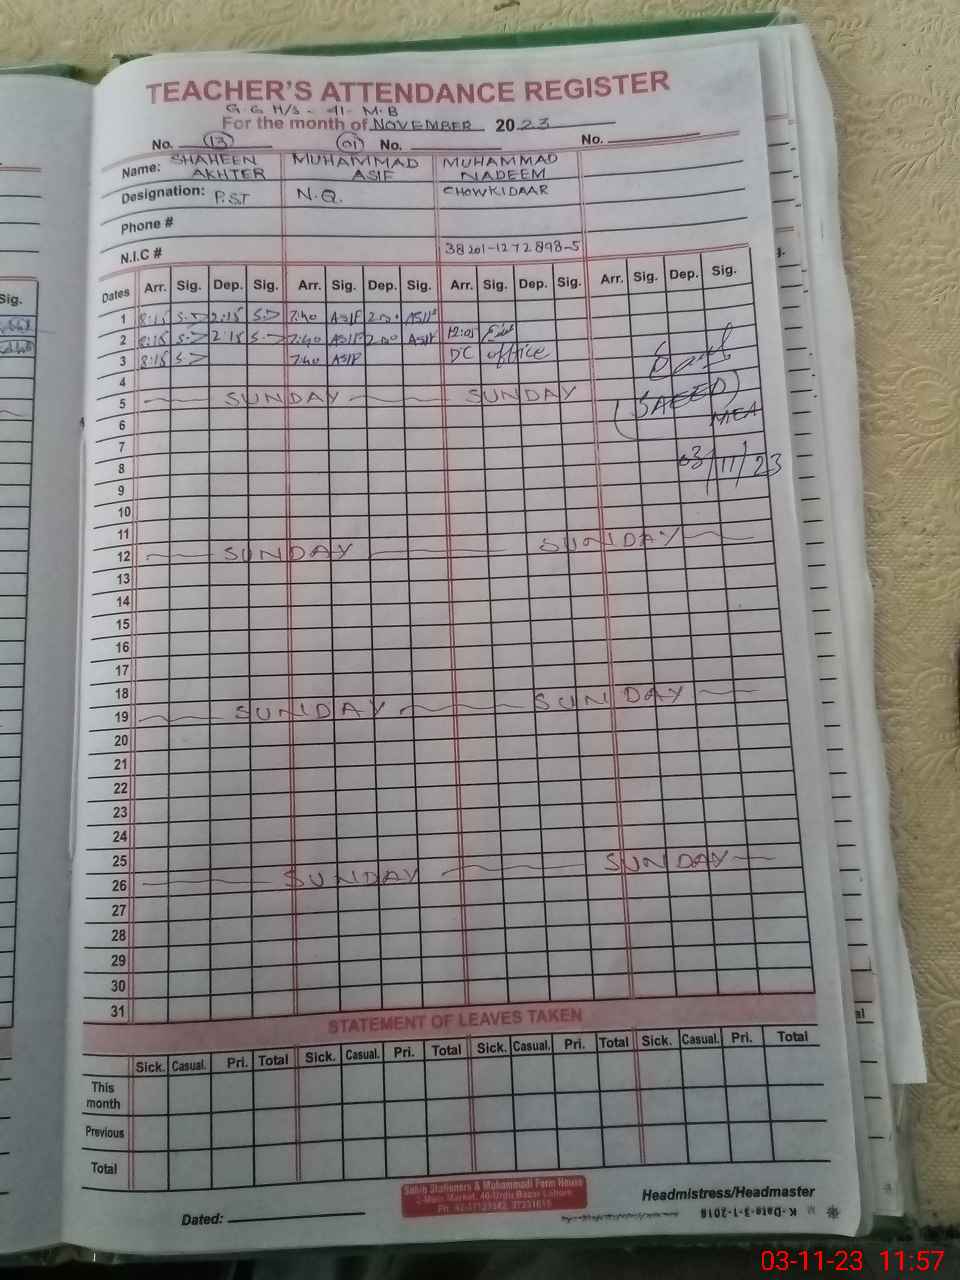 TEACHER'S ATTENDANCE REGISTER
G.G H/S - 41 - M.B
For the month of NOVEMBER 2023
No. 13 01 No. No.
Name: SHAHEEN AKHTER MUHAMMAD ASIF MUHAMMAD NADEEM
Designation: P.S.T N.Q. CHOWKIDAAR
Phone #
N.I.C # 38201-1272898-5
Dates Arr. Sig. Dep. Sig. Arr. Sig. Dep. Sig. Arr. Sig. Dep. Sig. Arr. Sig. Dep. Sig.
1 8:15 2:15 7:40 ASIF 2:00 ASIF
2 8:15 2:15 7:40 ASIF 2:00 ASIF 12:05
3 8:15 7:40 ASIF DC office
4
5 SUNDAY SUNDAY
(SAEED)
MEA
6
7
8
03/11/23
9
10
11
12 SUNDAY SUNDAY
13
14
15
16
17
18
19 SUNDAY SUNDAY
20
21
22
23
24
25
26 SUNDAY SUNDAY
27
28
29
30
31
STATEMENT OF LEAVES TAKEN
Sick. Casual. Pri. Total Sick. Casual. Pri. Total Sick. Casual. Pri. Total Sick. Casual. Pri. Total
This month
Previous
Total
Sahib Stationers & Muhammadi Form House
2-Main Market, 46-Urdu Bazar Lahore
Dated: Headmistress/Headmaster
K-Data-3-1-2018
Sig.
03-11-23 11:57